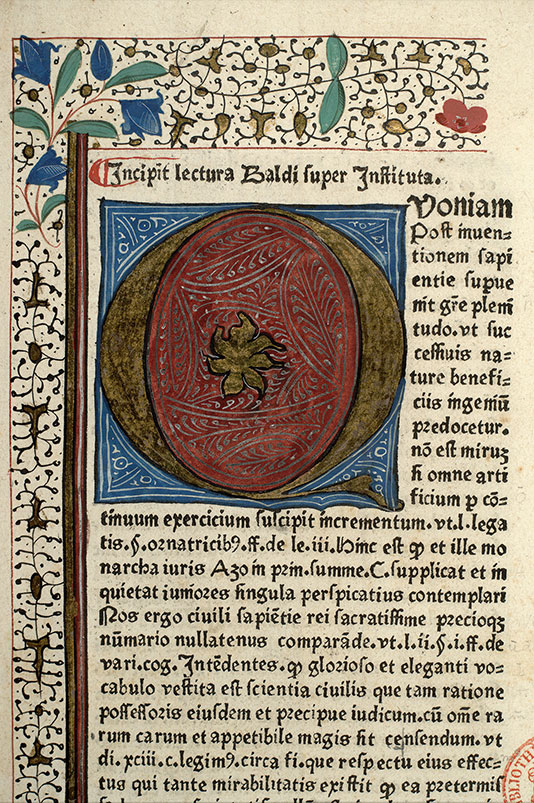 Incipit lectura Baldi super Instituta.
QVoniam
Post inuen-
tionem sapi
entie supue
nit gr̃e pleni
tudo. vt suc
cessiuis na-
ture benefi-
ciis ingeniũ
predocetur.
nõ est miruꝫ
si omne arti
ficium ꝑ cõ-
tinuum exercicium suscipit incrementum. vt.l. lega
tis.§. ornatricibꝰ.ff. de le.iii. Hinc est ꝙ et ille mo
narcha iuris Azo in prin. summe. C. supplicat et in
quietat iuniores singula perspicatius contemplari
Nos ergo ciuili sapiẽtie rei sacratissime precioqꝫ
nũmario nullatenus comparãde. vt.l.ii.§.i.ff. de
vari. cog. Intẽdentes. ꝙ glorioso et eleganti vo-
cabulo vestita est scientia ciuilis que tam ratione
possessoris eiusdem et precipue iudicum. cũ om̃e ra
rum carum et appetibile magis sit censendum. vt
di. xciii. c. legimꝰ. circa fi. que respectu eius effec-
tus qui tante mirabilitatis existit ꝙ ea pretermis
BIBLIOTH